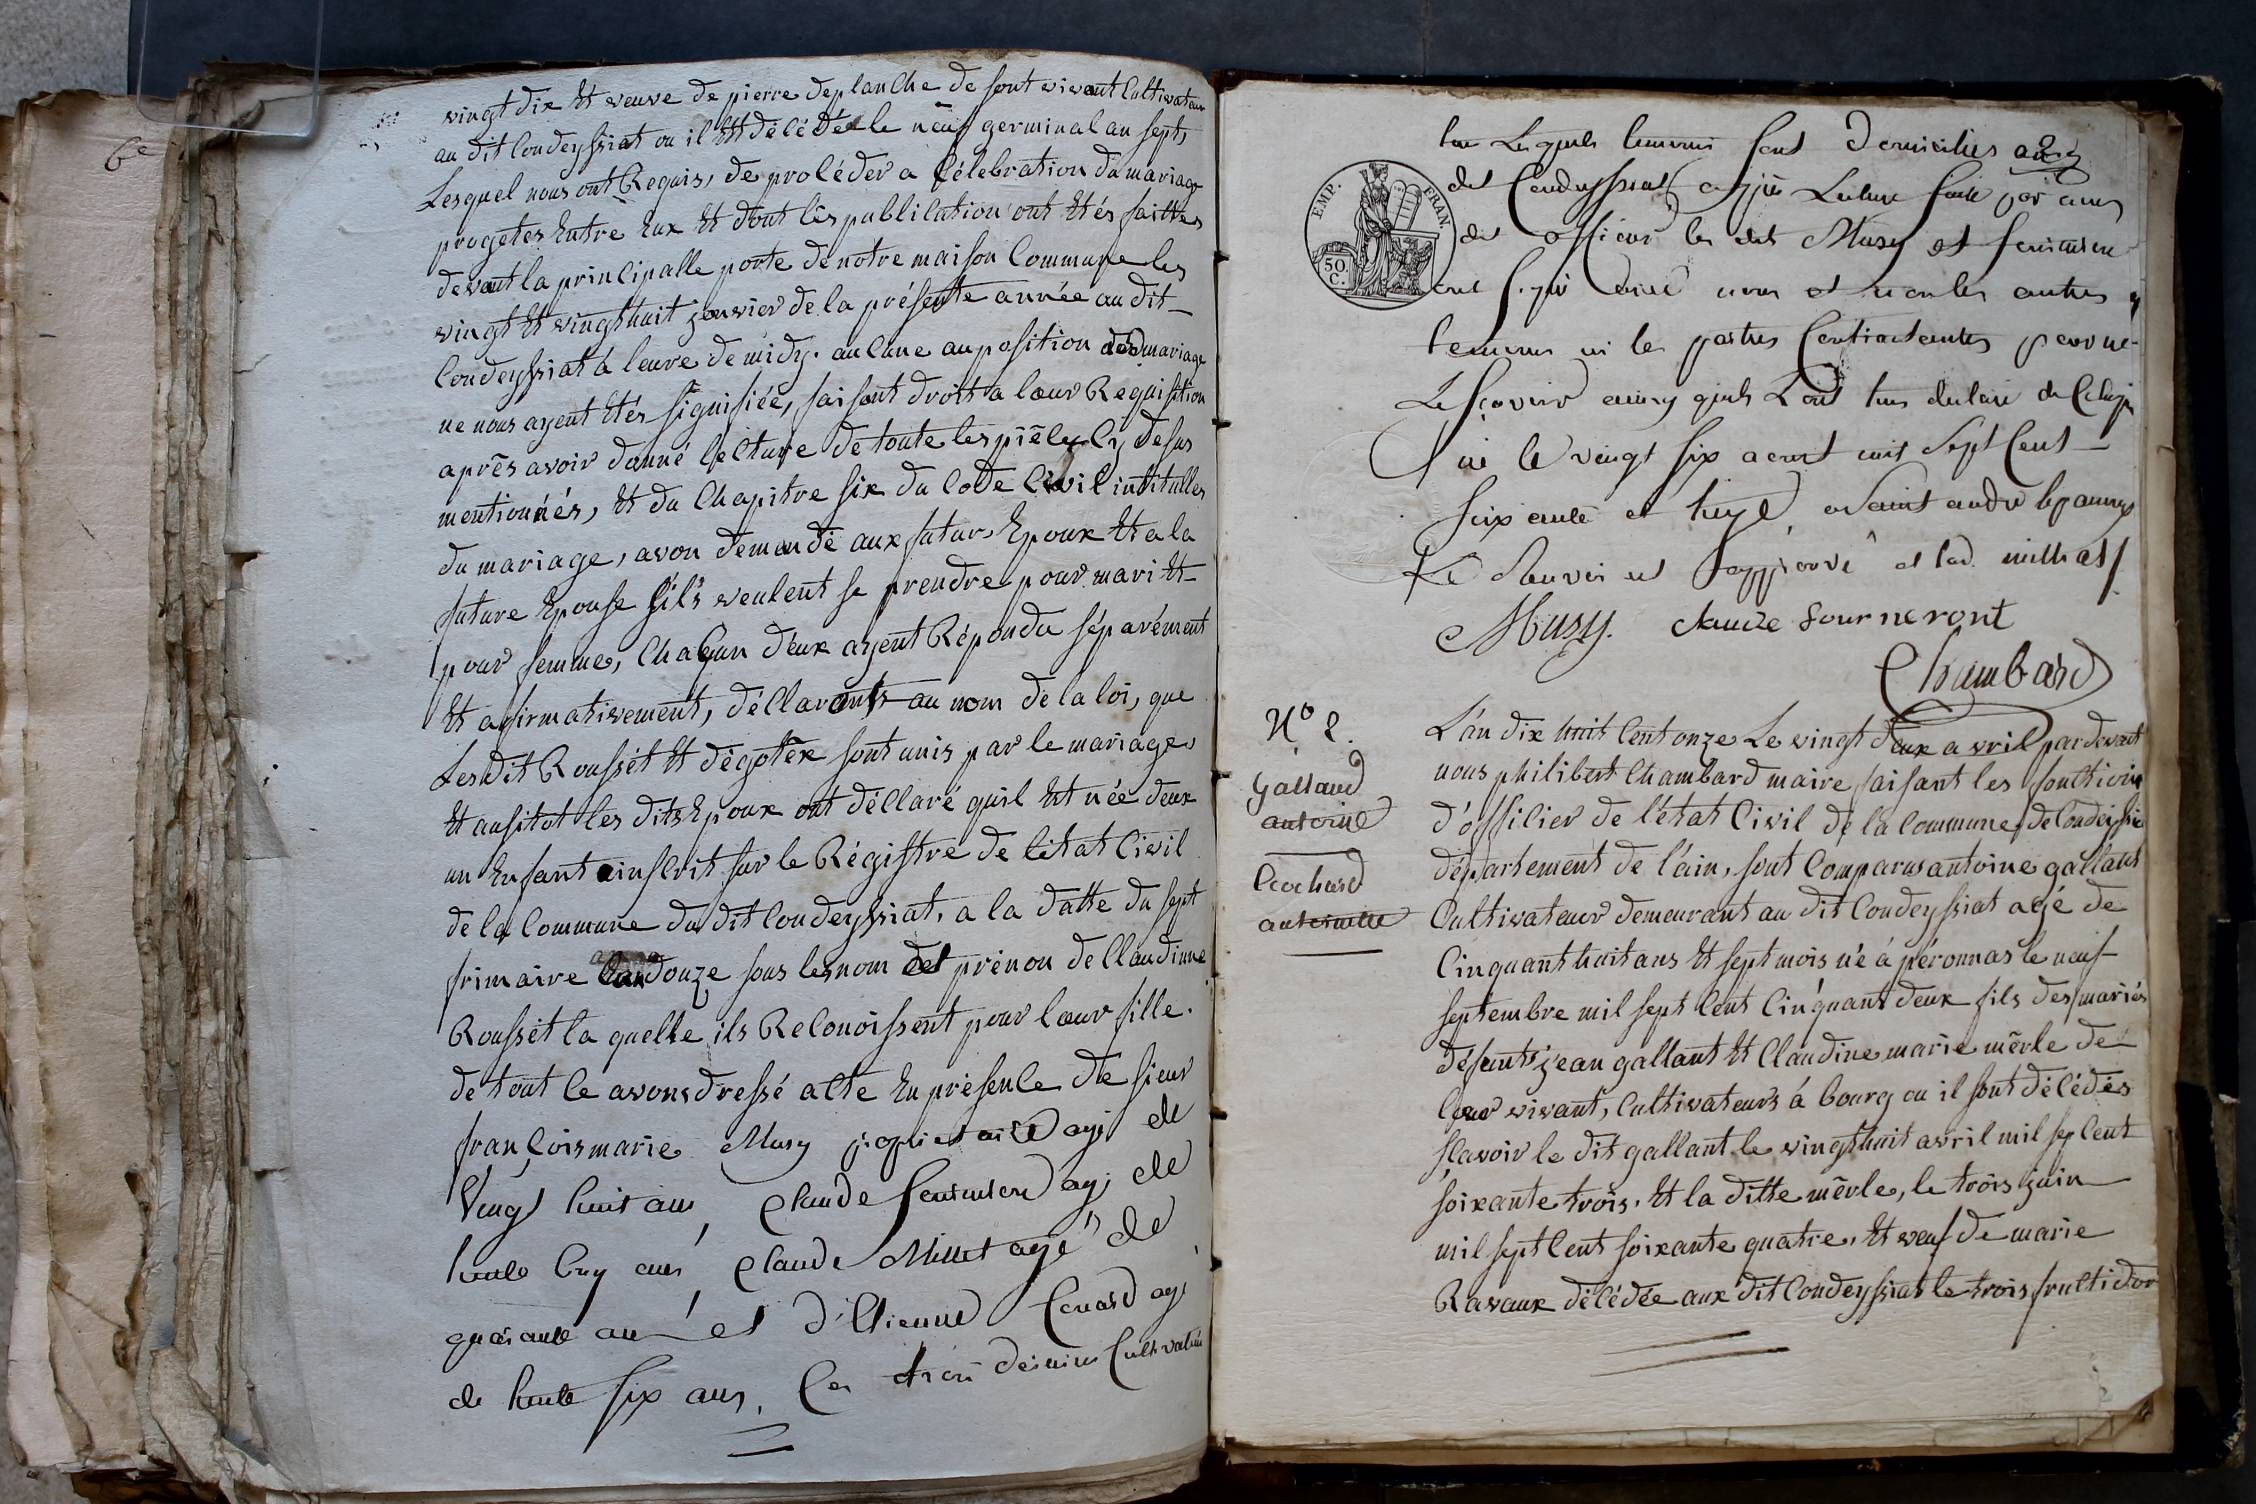 6e
vingt dix Et veuve de pierre deplanche de sont vivant Cultivateur
au dit Condeyssiat ou il Est décédé le neuf germinal an sept,
Lesquel nous ont Requis, de procéder a Célebration du mariage
progetes Entre Eux Et dont lês publication ont Etés faittes
devant la principalle porte de notre maison Commune les
vingt Et vingt huit janvier de la présente année au dit
Condeyssiat à leure de midy. aucune auposition mariage
ne nous ayent Etés signifiée, faisant droit a lœur Requisition
après avoir donné lecture de toute les pièce Cy desus
mentionnés, Et du Chapitre six du Code Civil intitulles
du mariage, avon demendé aux futur Epoux Et a la
future Epouse s'ils veulent se prendre pour mari Et
pour femme, Chacun d'eux ayent Répondu séparément
Et afirmativement, déclarons au nom de la loi, que
Lesdit Rousset Et dégotex sont unis par le mariage,
Et ausitot les dits Epoux ont déclaré quil Est née deux
un Enfant inscrit sur le Régistre de létat Civil
de la Commune du dit Condeyssiat, a la datte du sept
frimaire douze sous les nom et prénon de Claudinne
Rousset la quelle ils Reconoissent pour lœur fille.
de tout ce avons dressé acte En présence de sieur
françois marie Musy propriet aire agé de
Vingt huit ans, Claude agé de
ans Claude Millet agé de
quarante ans et d'Etienne agé
de trente six ans, Ces trois derniers Cultivateur
EMP. FRAN.
50. C.
Lesquels temoins sont Domiciliés
dit Condeyssiat Lecture faite par nous
dit officier les dits Musy et
ont signé avec nous et non les autres
temoins ni les parties Contractantes pour ne
Le sçavoir ainsy quils L'ont tous declaré de
né le vingt six aout mil Sept Cent
soixante et a saint andré le
approuvé et
Musy. claude fourneront
Chambard
No 2.
Galland
antoine
Cochard
antoinette
L'an dix huit Cent onze Le vingt deux avril pardevant
nous philibert Chambard maire faisant les fonctions
d'officier de l'état Civil de la Commune de Condeyssia
département de l'ain, sont Comparus antoine gallant
Cultivateur demeurant au dit Condeyssiat agé de
Cinquant huit ans Et sept mois né à péronnas le neuf
septembre mil sept Cent Cinquant deux fils des mariés
défunts jean gallant Et Claudine marie mêrle de
leur vivant, Cultivateurs á bourg ou il sont décédés
sçavoir le dit gallant le vingt huit avril mil sep Cent
soixante trois. Et la ditte mêrle, le trois juin
mil sept Cent soixante quatre, Et veuf de marie
Ravaux décédée aux dit Condeyssiat le trois fructidor